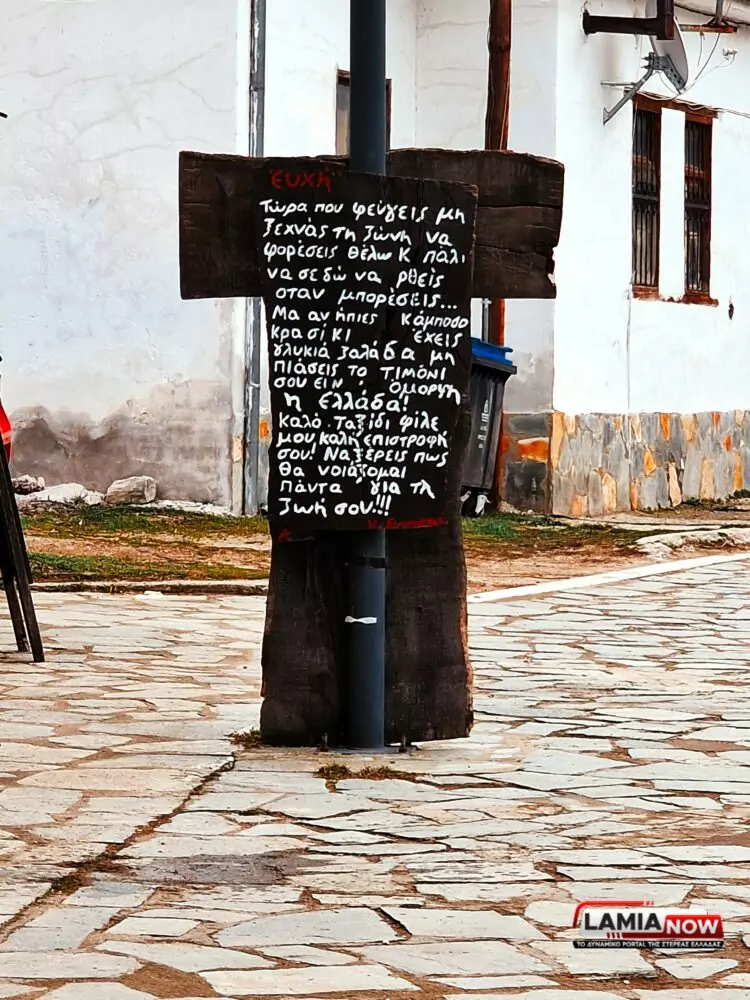 ευχή
Τώρα που φεύγεις μη
ξεχνάς τη ζώνη να
φορέσεις θέλω κ πάλι
να σε δώ να ρθείς
οταν μπορέσεις...
Μα αν ήπιες κάμποσο
κρασί κι έχεις
γλυκιά ζαλάδα μη
πιάσεις το τιμόνι
σου ειν' όμορφη
η Ελλάδα!
καλό ταξίδι φίλε
μου καλή επιστροφή
σου! Να ξέρεις πως
θα νοιάζομαι
πάντα για τη
ζωή σου!!!
LAMIA NOW
ΤΟ ΔΥΝΑΜΙΚΟ PORTAL ΤΗΣ ΣΤΕΡΕΑΣ ΕΛΛΑΔΑΣ